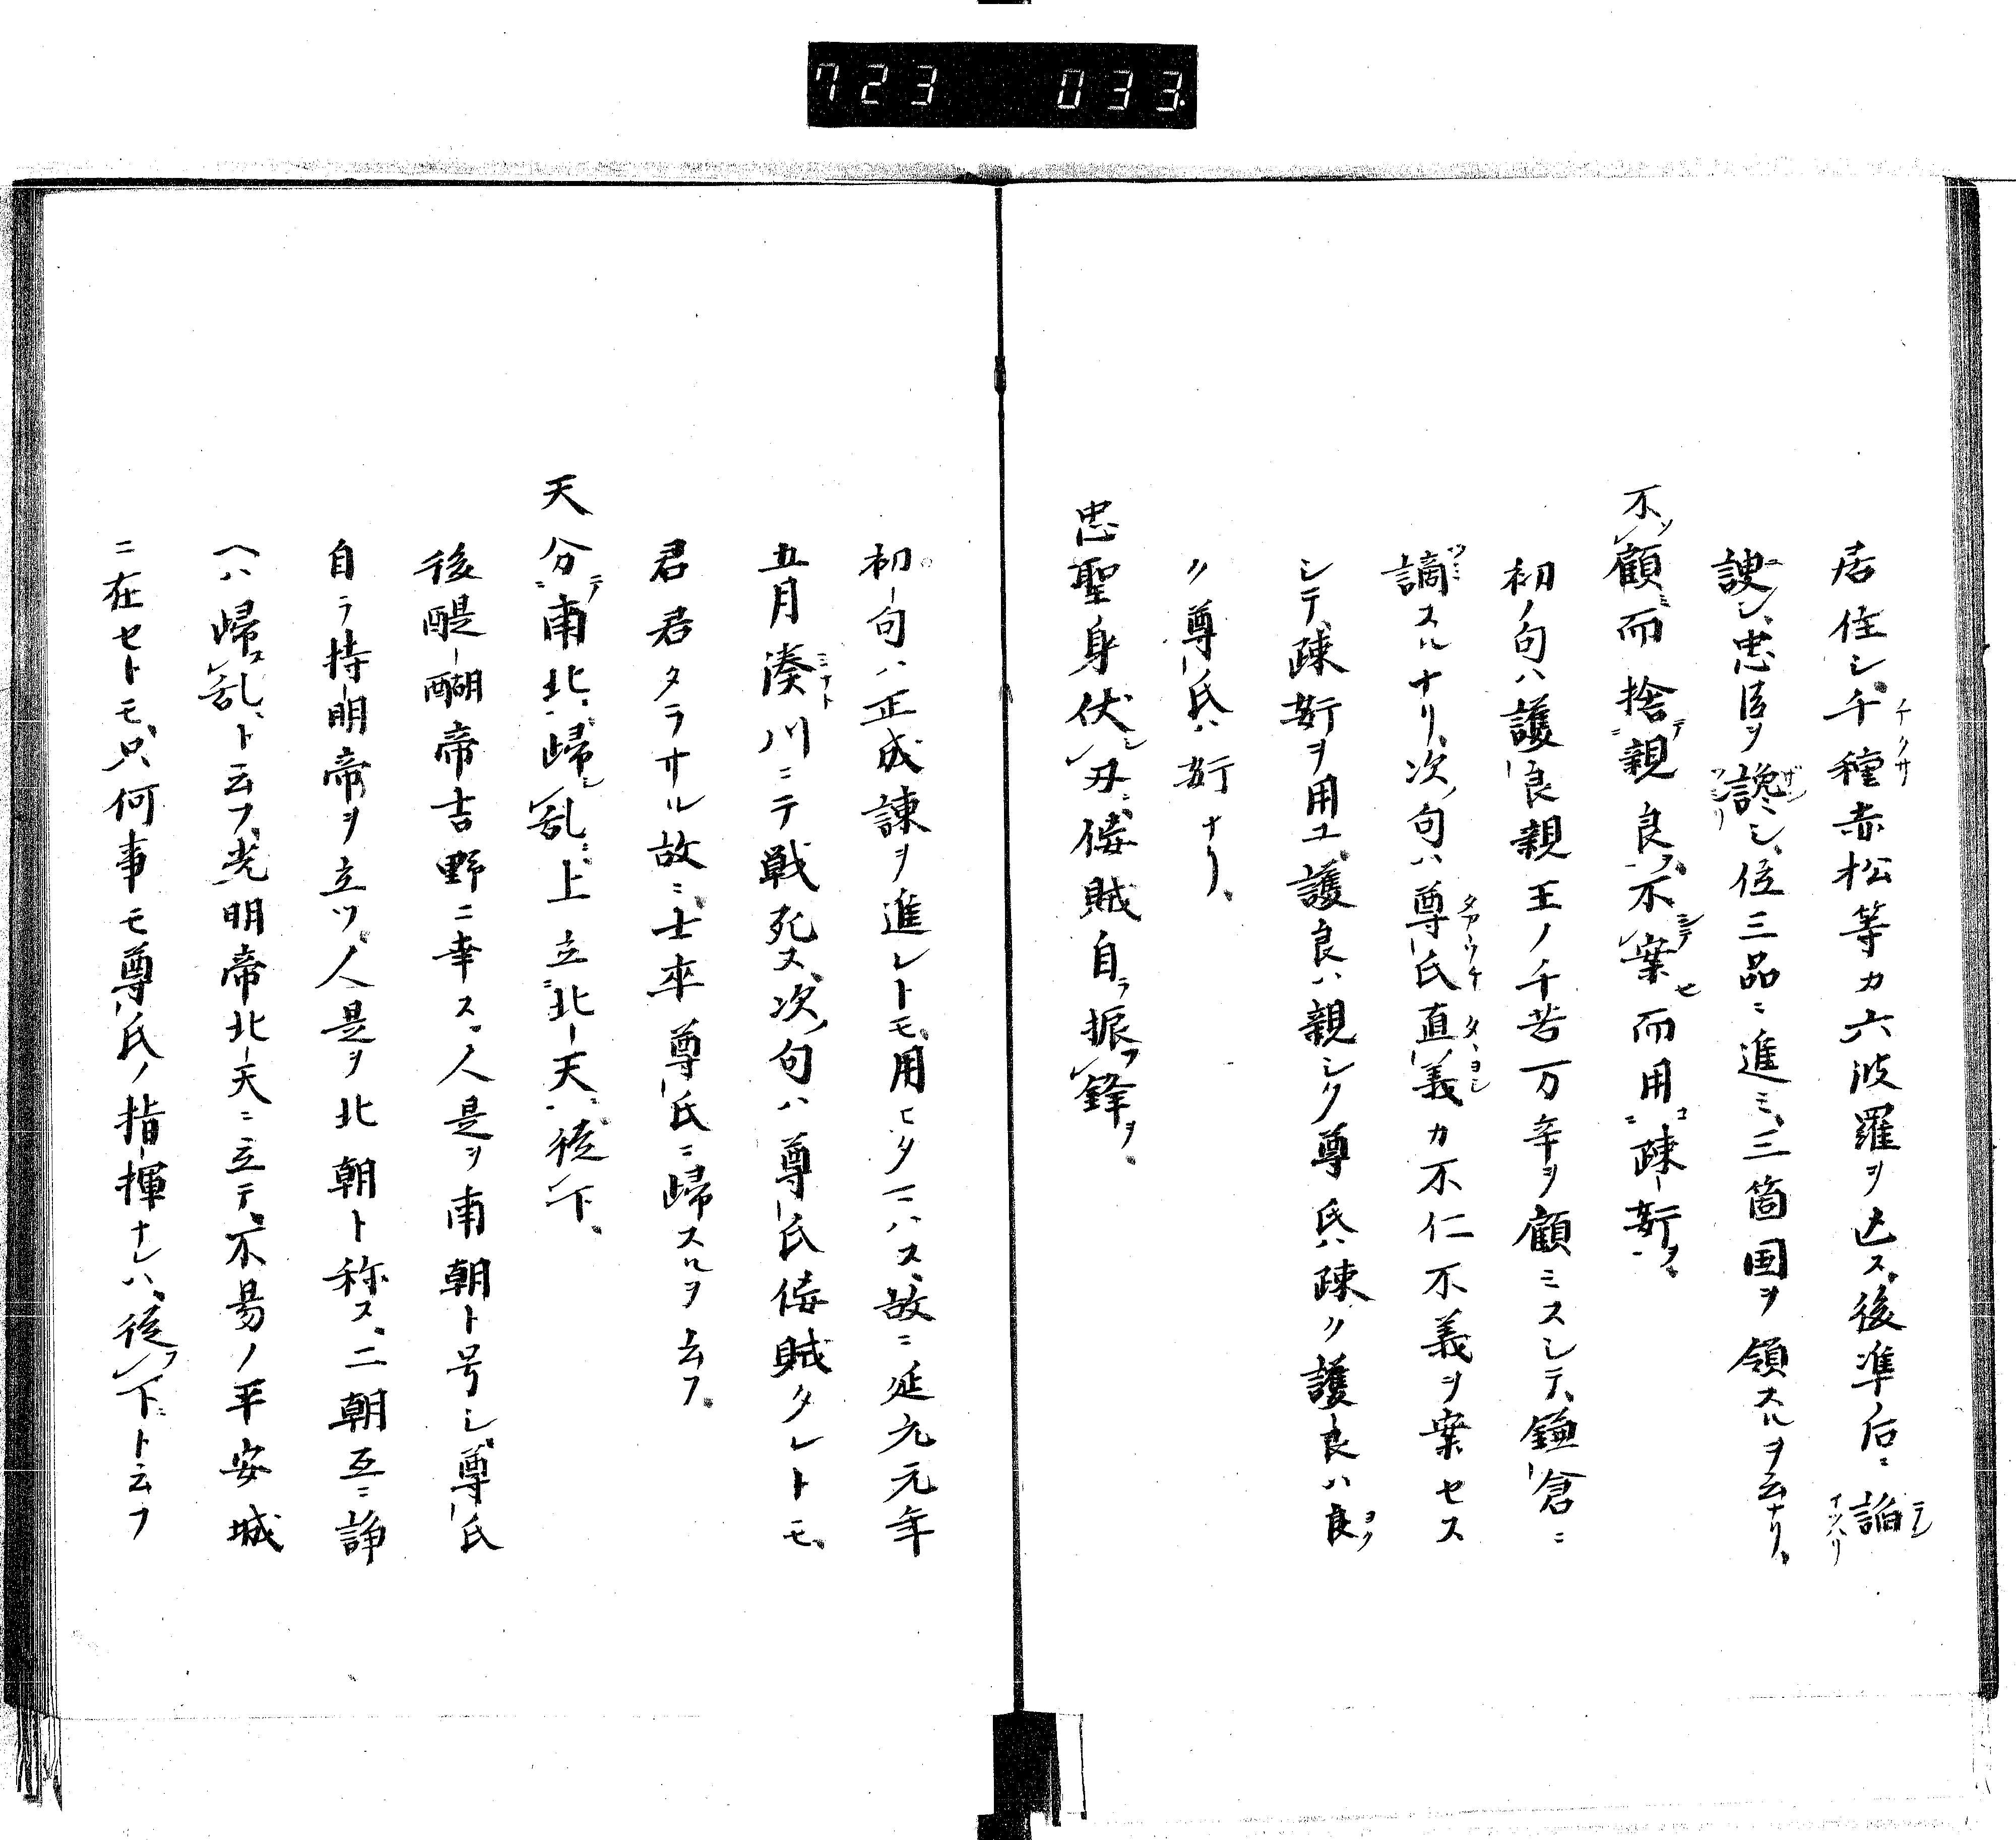 723 033
居住シ、千種赤松等カ六波羅ヲ亡ス、後準后ニ諂
諛シ、忠臣ヲ讒シ、位三品ニ進ミ、三箇国ヲ領スルヲ云ナリ、
不顧而捨親良ヲ、不案而用疎姧ヲ、
初ノ句ハ護良親王ノ千苦万辛ヲ顧ミスシテ、鎌倉ニ
謫スルナリ、次ノ句ハ尊氏直義カ不仁不義ヲ案セス
シテ、疎姧ヲ用ユ、護良ハ親シク尊氏ハ疎ク護良ハ良
ク尊氏ハ姧ナリ、
忠聖身伏シ刃ニ、倭賊自ラ振フ鋒ヲ、
初ノ句ハ正成諫ヲ進レトモ、用ヒタマハス、故ニ延元元年
五月湊川ニテ戦死ス、次ノ句ハ尊氏倭賊タレトモ、
君君タラサル故ニ、士卒尊氏ニ帰スルヲ云フ、
天分テ南北ニ歸シ乱ニ、上立北天ニ、徒下、
後醍醐帝吉野ニ幸ス、人是ヲ南朝ト号シ、尊氏
自ラ持明帝ヲ立ツ、人是ヲ北朝ト称ス、二朝互ニ諍
ヘハ歸ス乱ニト云フ、光明帝北天ニ立テ、不易ノ平安城
ニ在セトモ、只何事モ尊氏ノ指揮ナレハ、徒下ト云フ